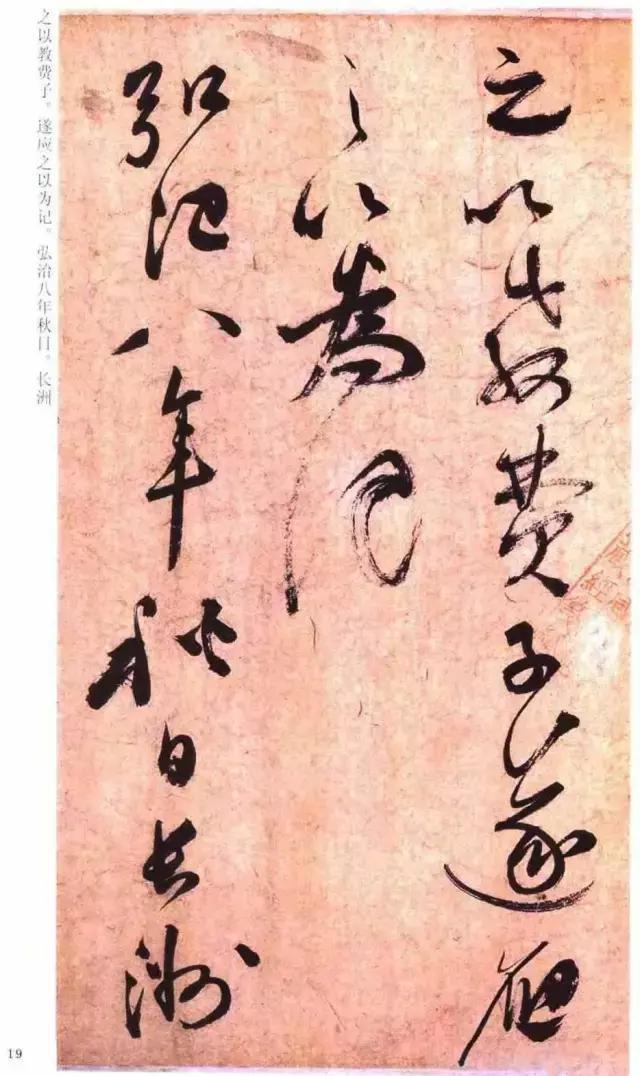 之以教费子。遂应之以为记。弘治八年秋日。长洲
之以教費子遂應
之以為記
弘治八年秋日長洲
19